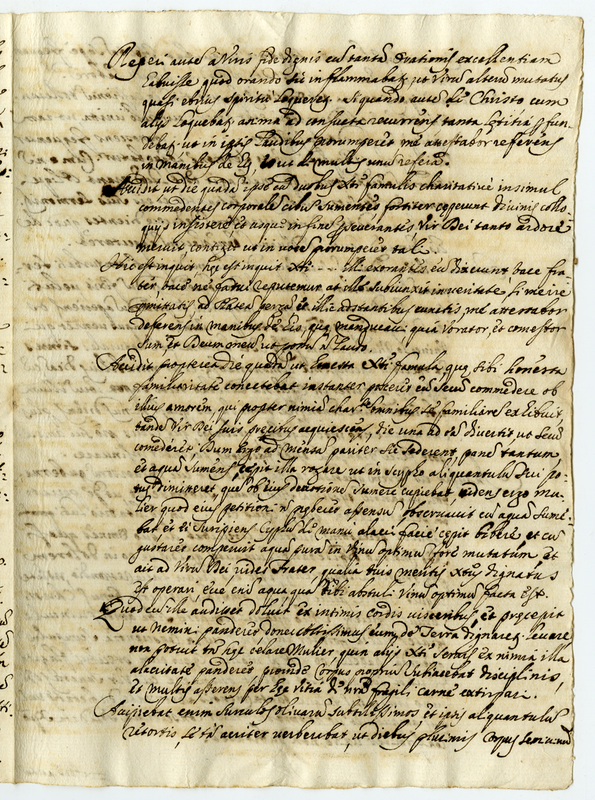 Reperi autē à Viris fide dignis eū tantā orationis excellentiam
habuisse quod orando sic inflammabat, ut Virū alterū mutatus
quasi ebrius spiritu loqueret. Si quando autē de Christo cum
alijs loquebat, anima ad consueta recurrens tanta letitia p fun-
debat, ut in ipsis laudibus prorumperet me attestabor referens
in manibus de Eo, ut de multis unū referā.
Accidit ut die quadā ipse cū duobus Xti famulis charitativè insimul
commedentes corporale cibū sumentes fortiter ceperunt divinis collo-
quijs insistere et usque in fine perseverantes Vir Dei tanto ardore
meruit contigit ut in voce prorumperet tali.
Hic est inquit, hic est inquit Xti illi exorantes eū dixerunt, tace fra-
ter, tace ne fatui reputemur at ille subiunxit
ad Platea et illic adstantibus cunctis, me attestabor
deferens in manibus de eo, que manducavi, quia Vorator, et comestor
sum, et Deum meū ut potui laudo.
Accidit propterea die quadā ut honesta Xti famula que sibi honesta
familiaritate conectebat instanter peteret eū secū commedere ob
illius amorem, qui propter nimiā charitē omnibus se familiare exibuit
tandē Vir Dei suis precibus acquiescens, die una ad eā divertit, ut secū
comederet. Dum ergo ad mensā pariter sederent, pane tantum
et aqua sumens cepit illa rogare ut in scypho aliquantulū vini po-
tus dimitteret, que ob eius devotione sumere cupiebat, videns ergo mu-
lier quod eius petitioni nō preberet assensū observavit cū aquā sume-
bat, et suscipiens Cyphū de manu alacri facie cepit bibere, et cū
gustaret comperuit aquā purā in vinū optimū fore mutatum et
ait ad Virū Dei vides frater, qualia tuis meritis Xtus dignatus
est operari ecce enim aqua quā tibi abstuli vinū optimū facta est.
Quod cū ille audisset doluit ex intimis cordis visceribus et precepit
ut nemini panderet donec altissimus eum de Terra dignaret levare
non potuit tn hoc celare Mulier quin alijs Xti servis ex nimia illa
alacritate panderet, proinde corpus propriū subiaciebat disciplinis,
et multis asserens per hec vitia de nrā fragili carne extirpari.
Accipiebat enim surculos olivarū subtilissimos, et ipsis aliquantulū
retortis, se tā acriter verberabat, ut diebus plurimis corpus